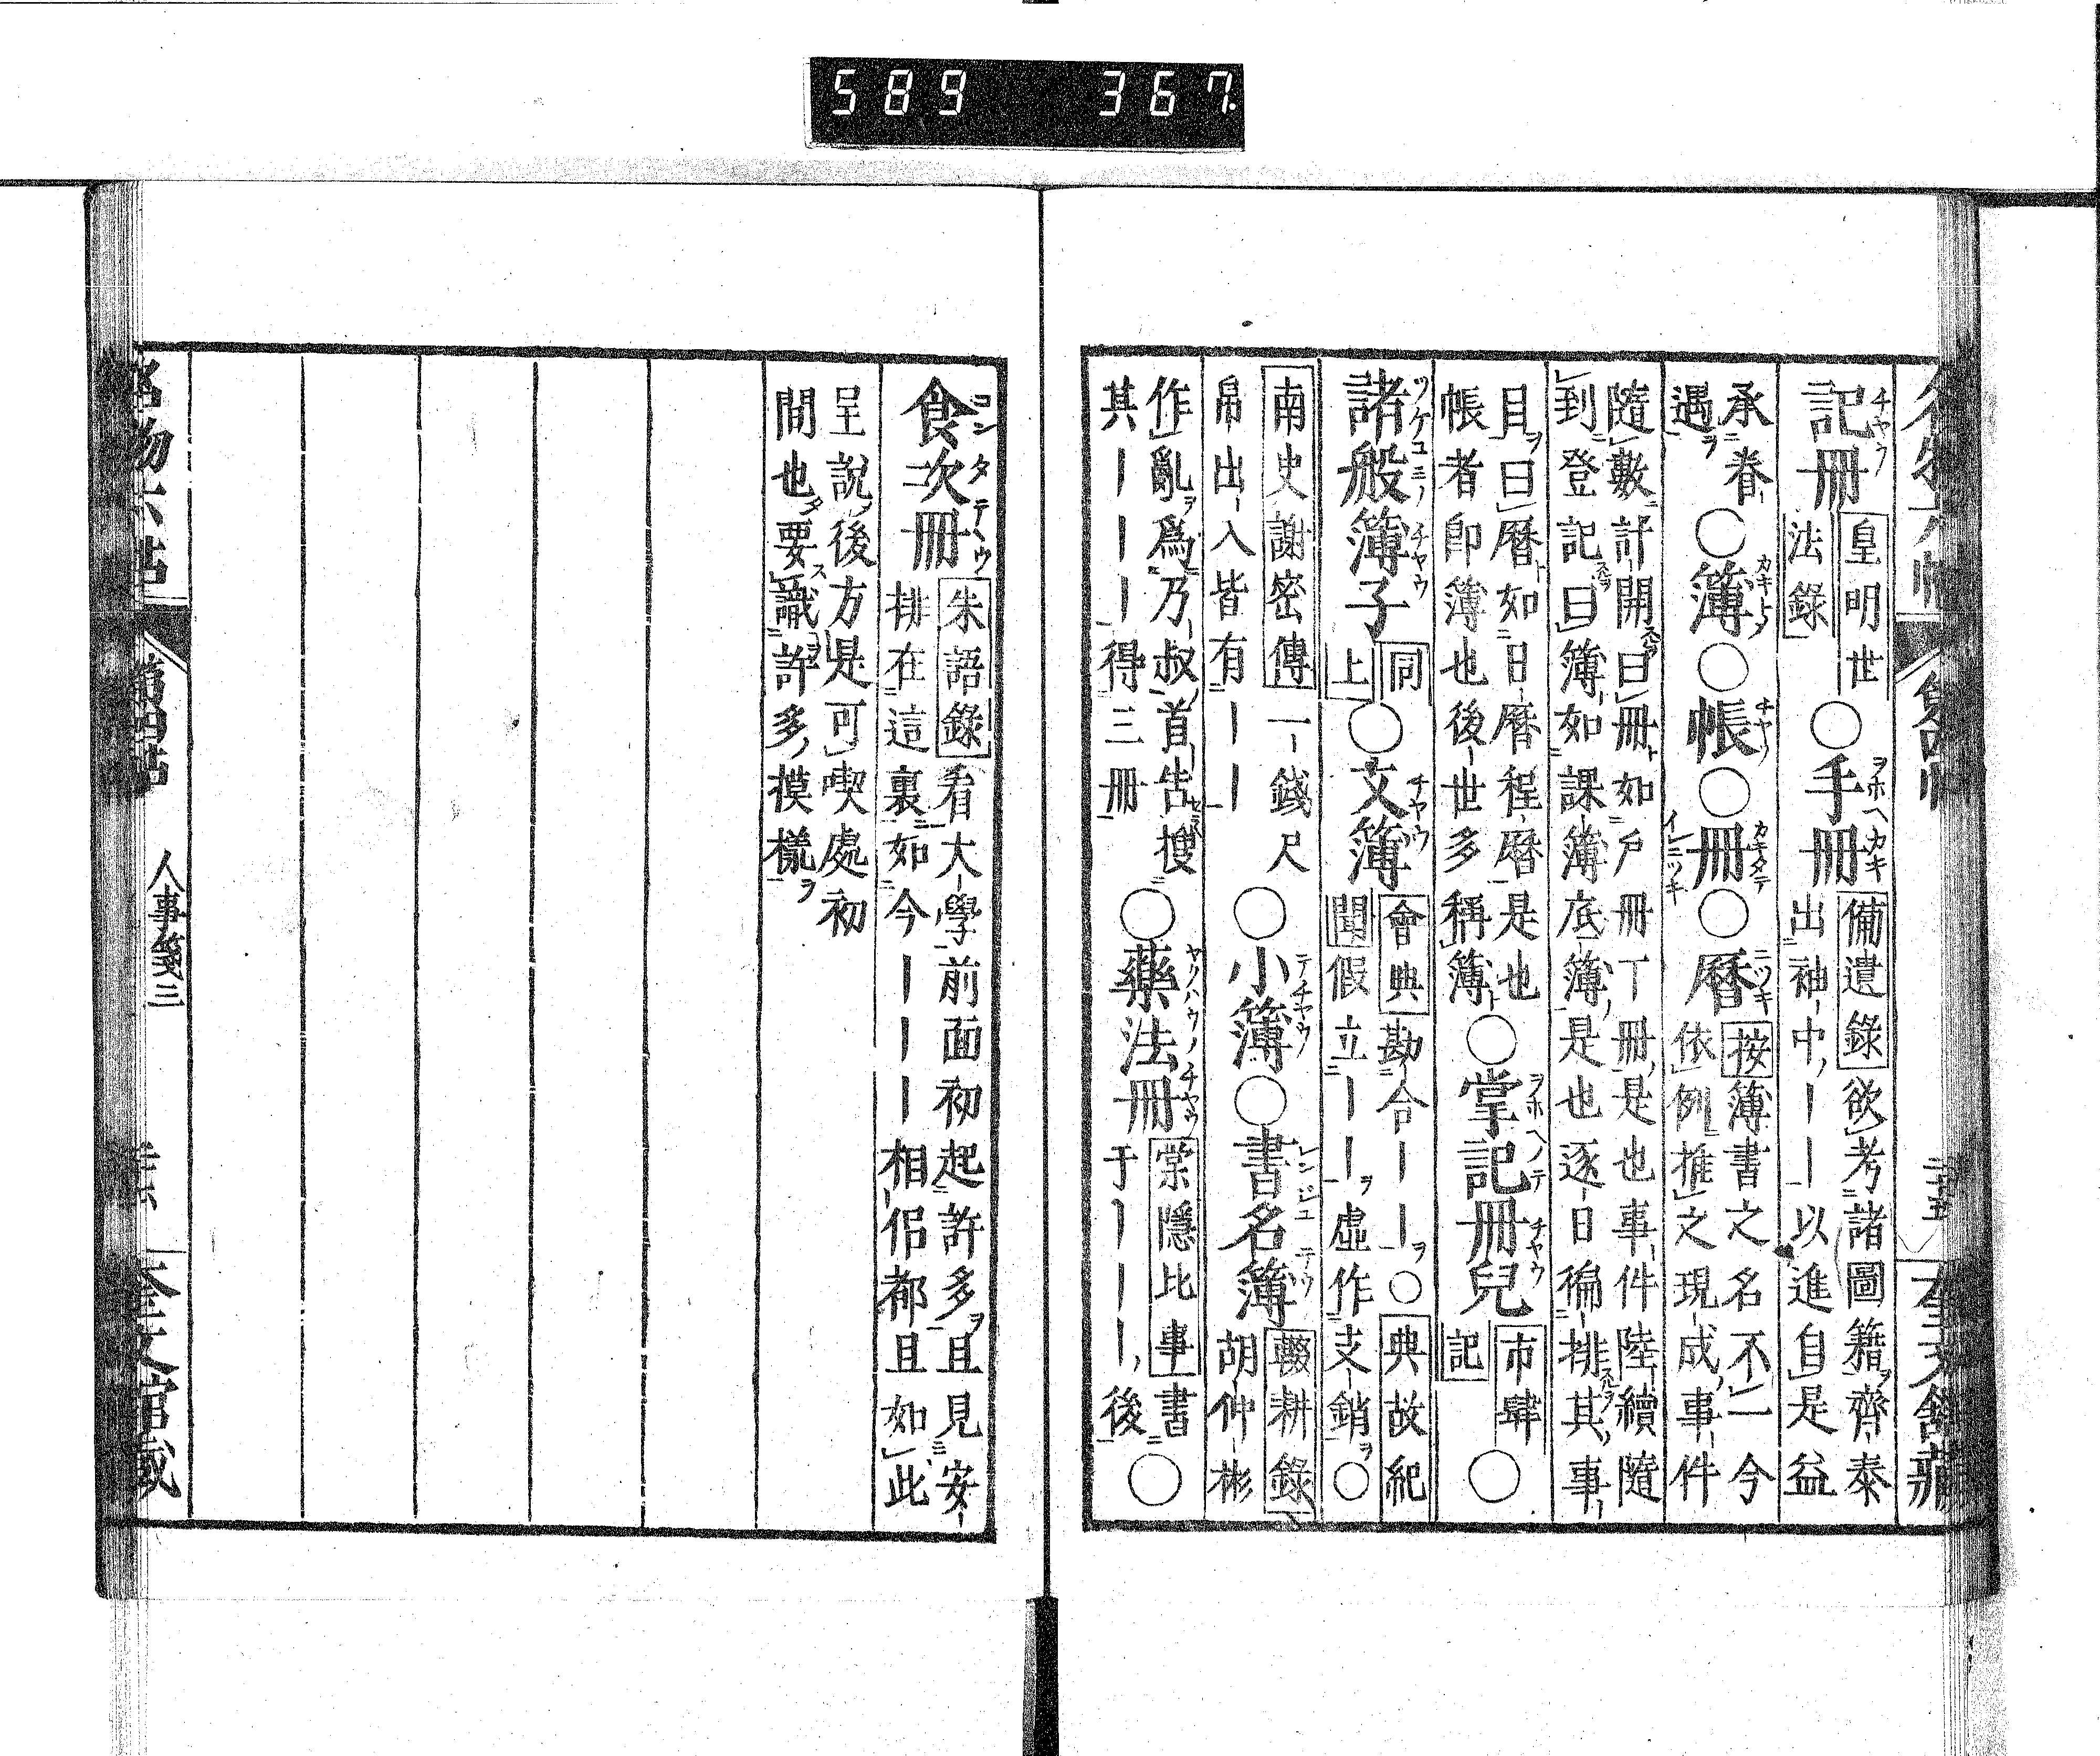 589 367
記冊 皇明世法錄 ○手冊 備遺錄 欲考諸圖籍齊泰出袖中｜｜以進自是益
承眷遇 ○簿 ○帳 ○冊 ○曆 按 簿書之名不一今依例推之現成事件
隨數計開曰冊如戶冊丁冊是也事件陸續隨到登記曰簿如課簿底簿是也逐日徧排其事
目曰曆如日曆程曆是也帳者卽簿也後世多稱簿 ○掌記冊兒 市肆記 ○
諸般簿子 同上 ○文簿 會典 勘合｜｜○ 典故紀聞 假立｜｜虛作支銷○
南史謝密傳 一錢尺帛出入皆有｜｜ ○小簿 ○書名簿 輟耕錄 胡仲彬
作亂爲乃叔首告搜其｜｜｜得三冊 ○藥法冊 棠隱比事 書于｜｜｜後 ○
食次冊 朱語錄 看大學前面初起許多且見安排在這裏如今｜｜｜相侶都且如此
呈說後方是可喫處初間也要識許多摸樣
人事箋三